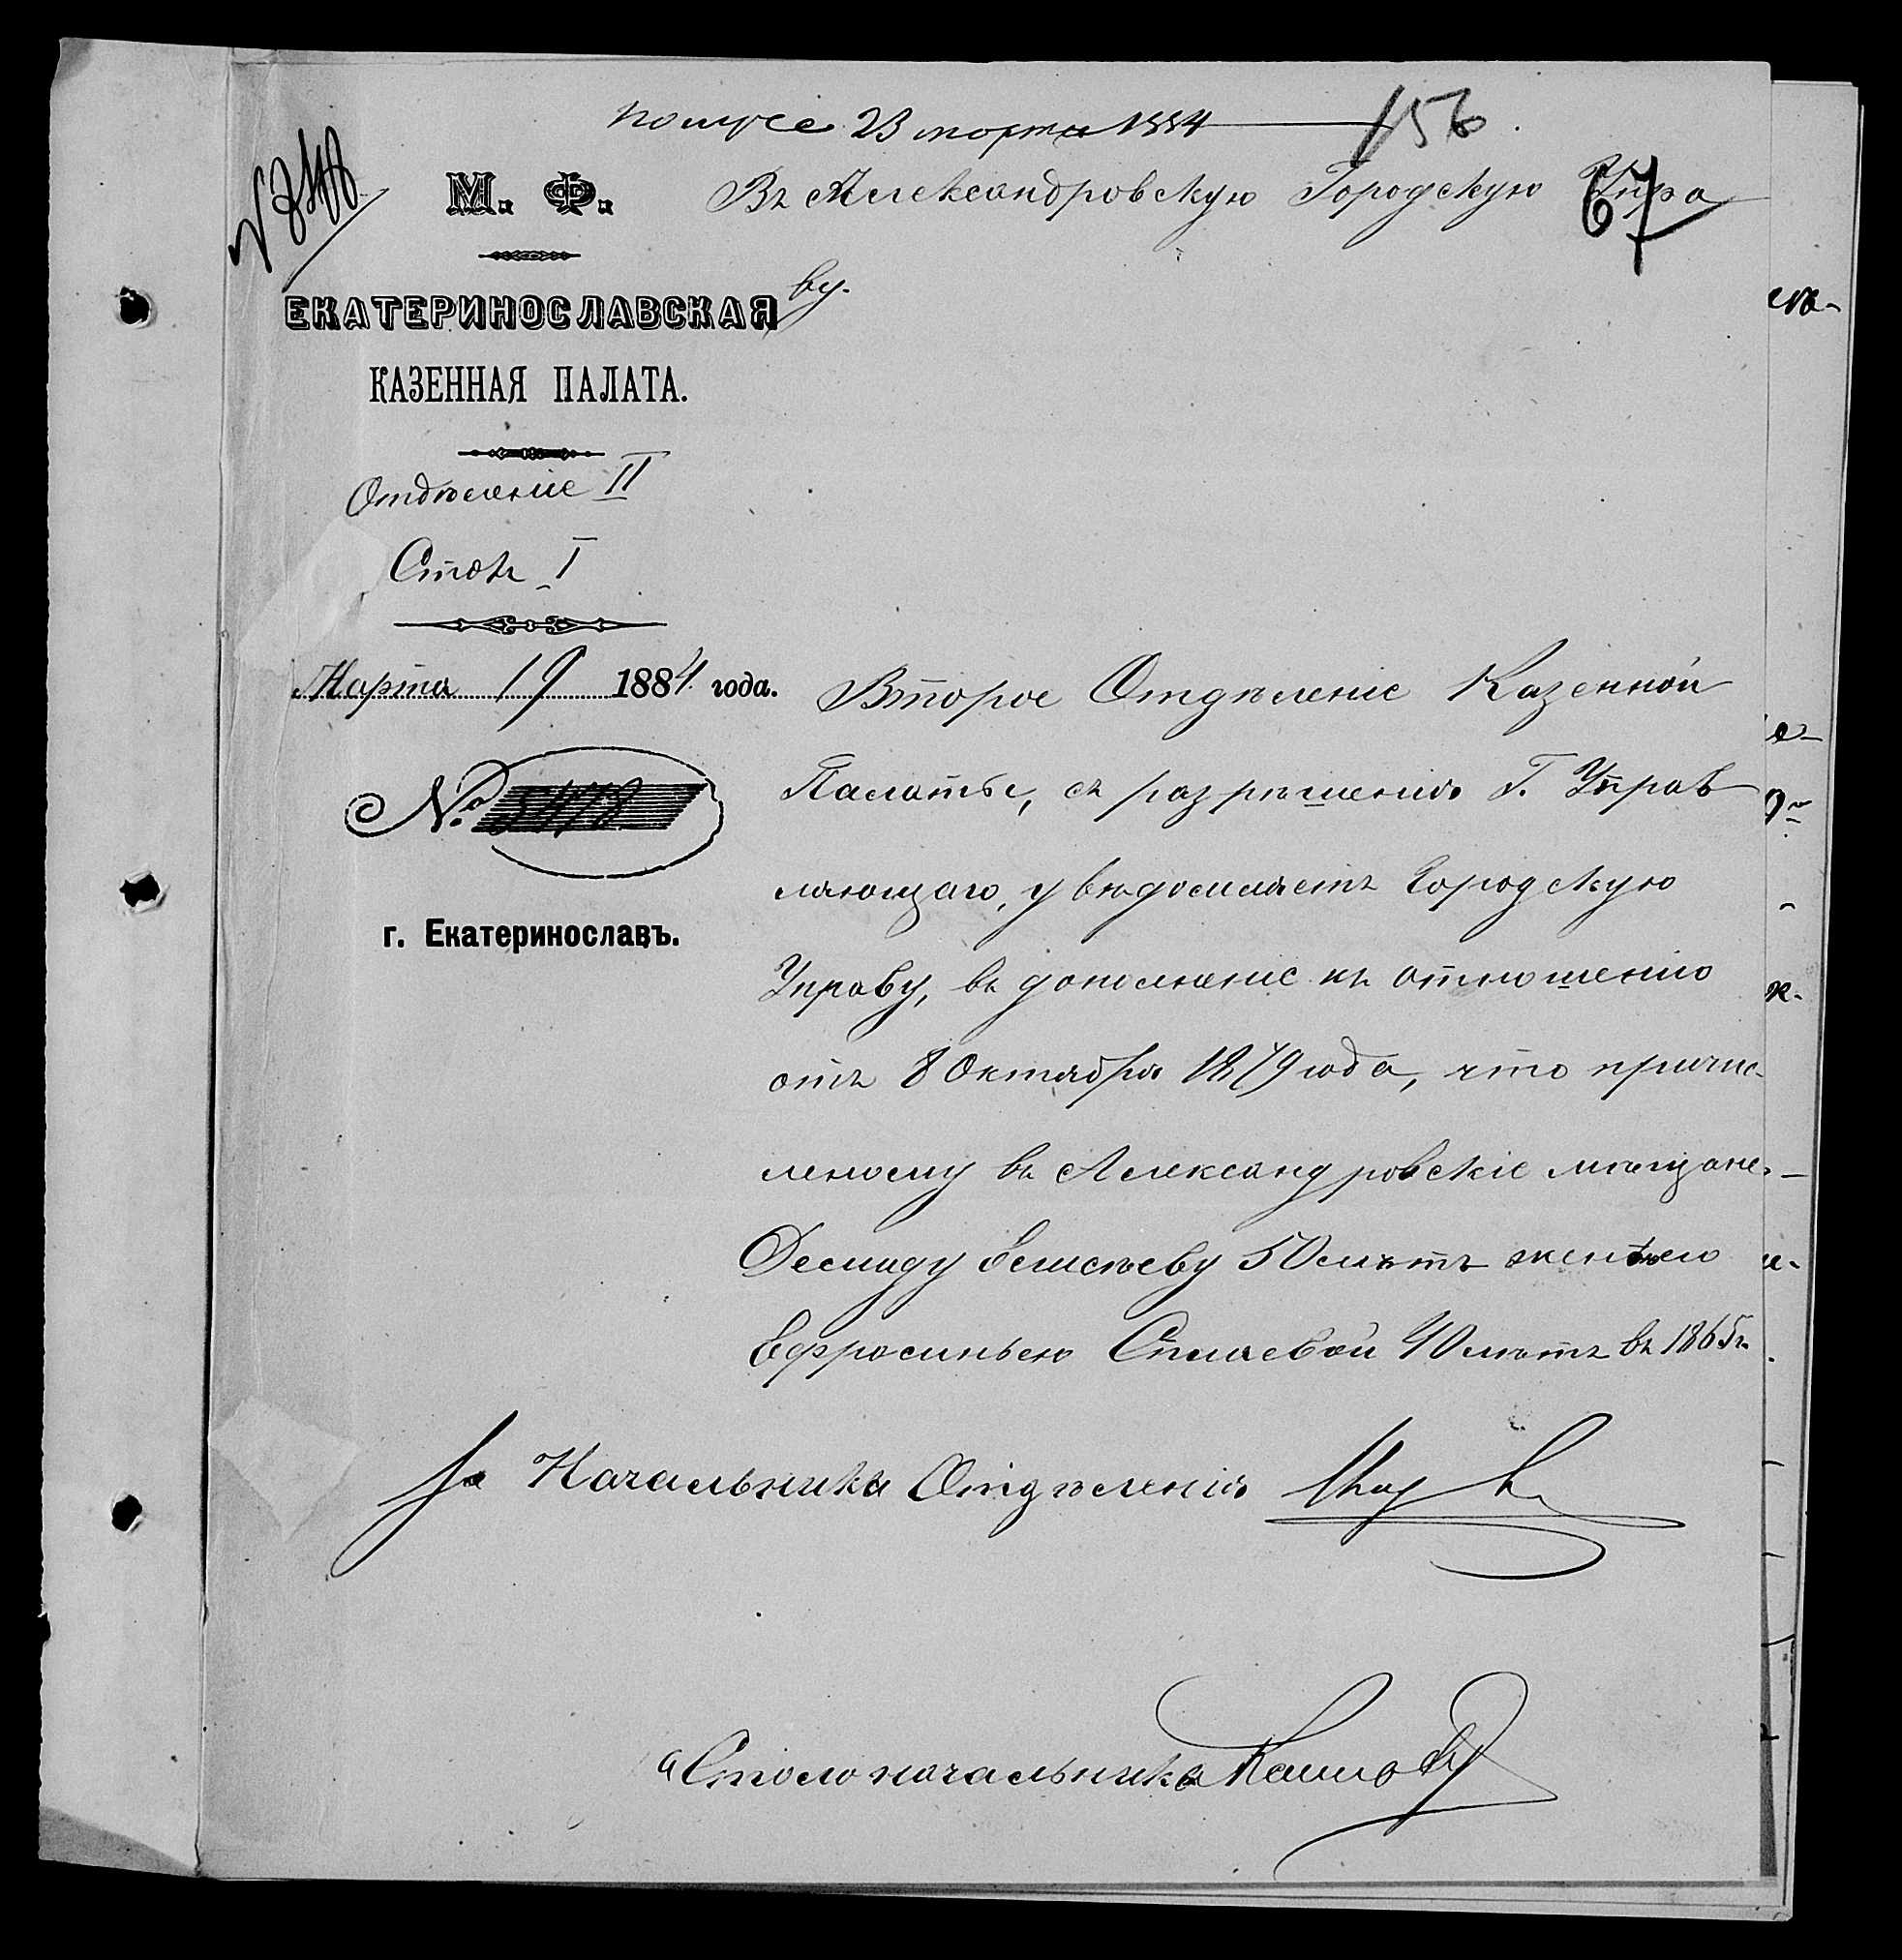 получе 23 марта 1884
156
67
М. Ф.
Въ Александровскую Городскую Упра
ву.
ЕКАТЕРИНОСЛАВСКАЯ
КАЗЕННАЯ ПАЛАТА.
Отдѣленіе II
Столъ I
Марта 19 1884 года.
№ 5478
г. Екатеринославъ.
Второе Отдѣленіе Казенной
Палаты, съ разрѣшенія Г. Управ
ляющаго, увѣдомляетъ Городскую
Управу, въ дополненіе къ отношенію
отъ 8 Октября 1879 года, что причис-
леному въ Александровскіе мѣщане
Демиду 50 лѣтъ женѣ его
Ефросиньею 40 лѣтъ въ 1865 г.
За Начальника Отдѣленія
Столоначальника